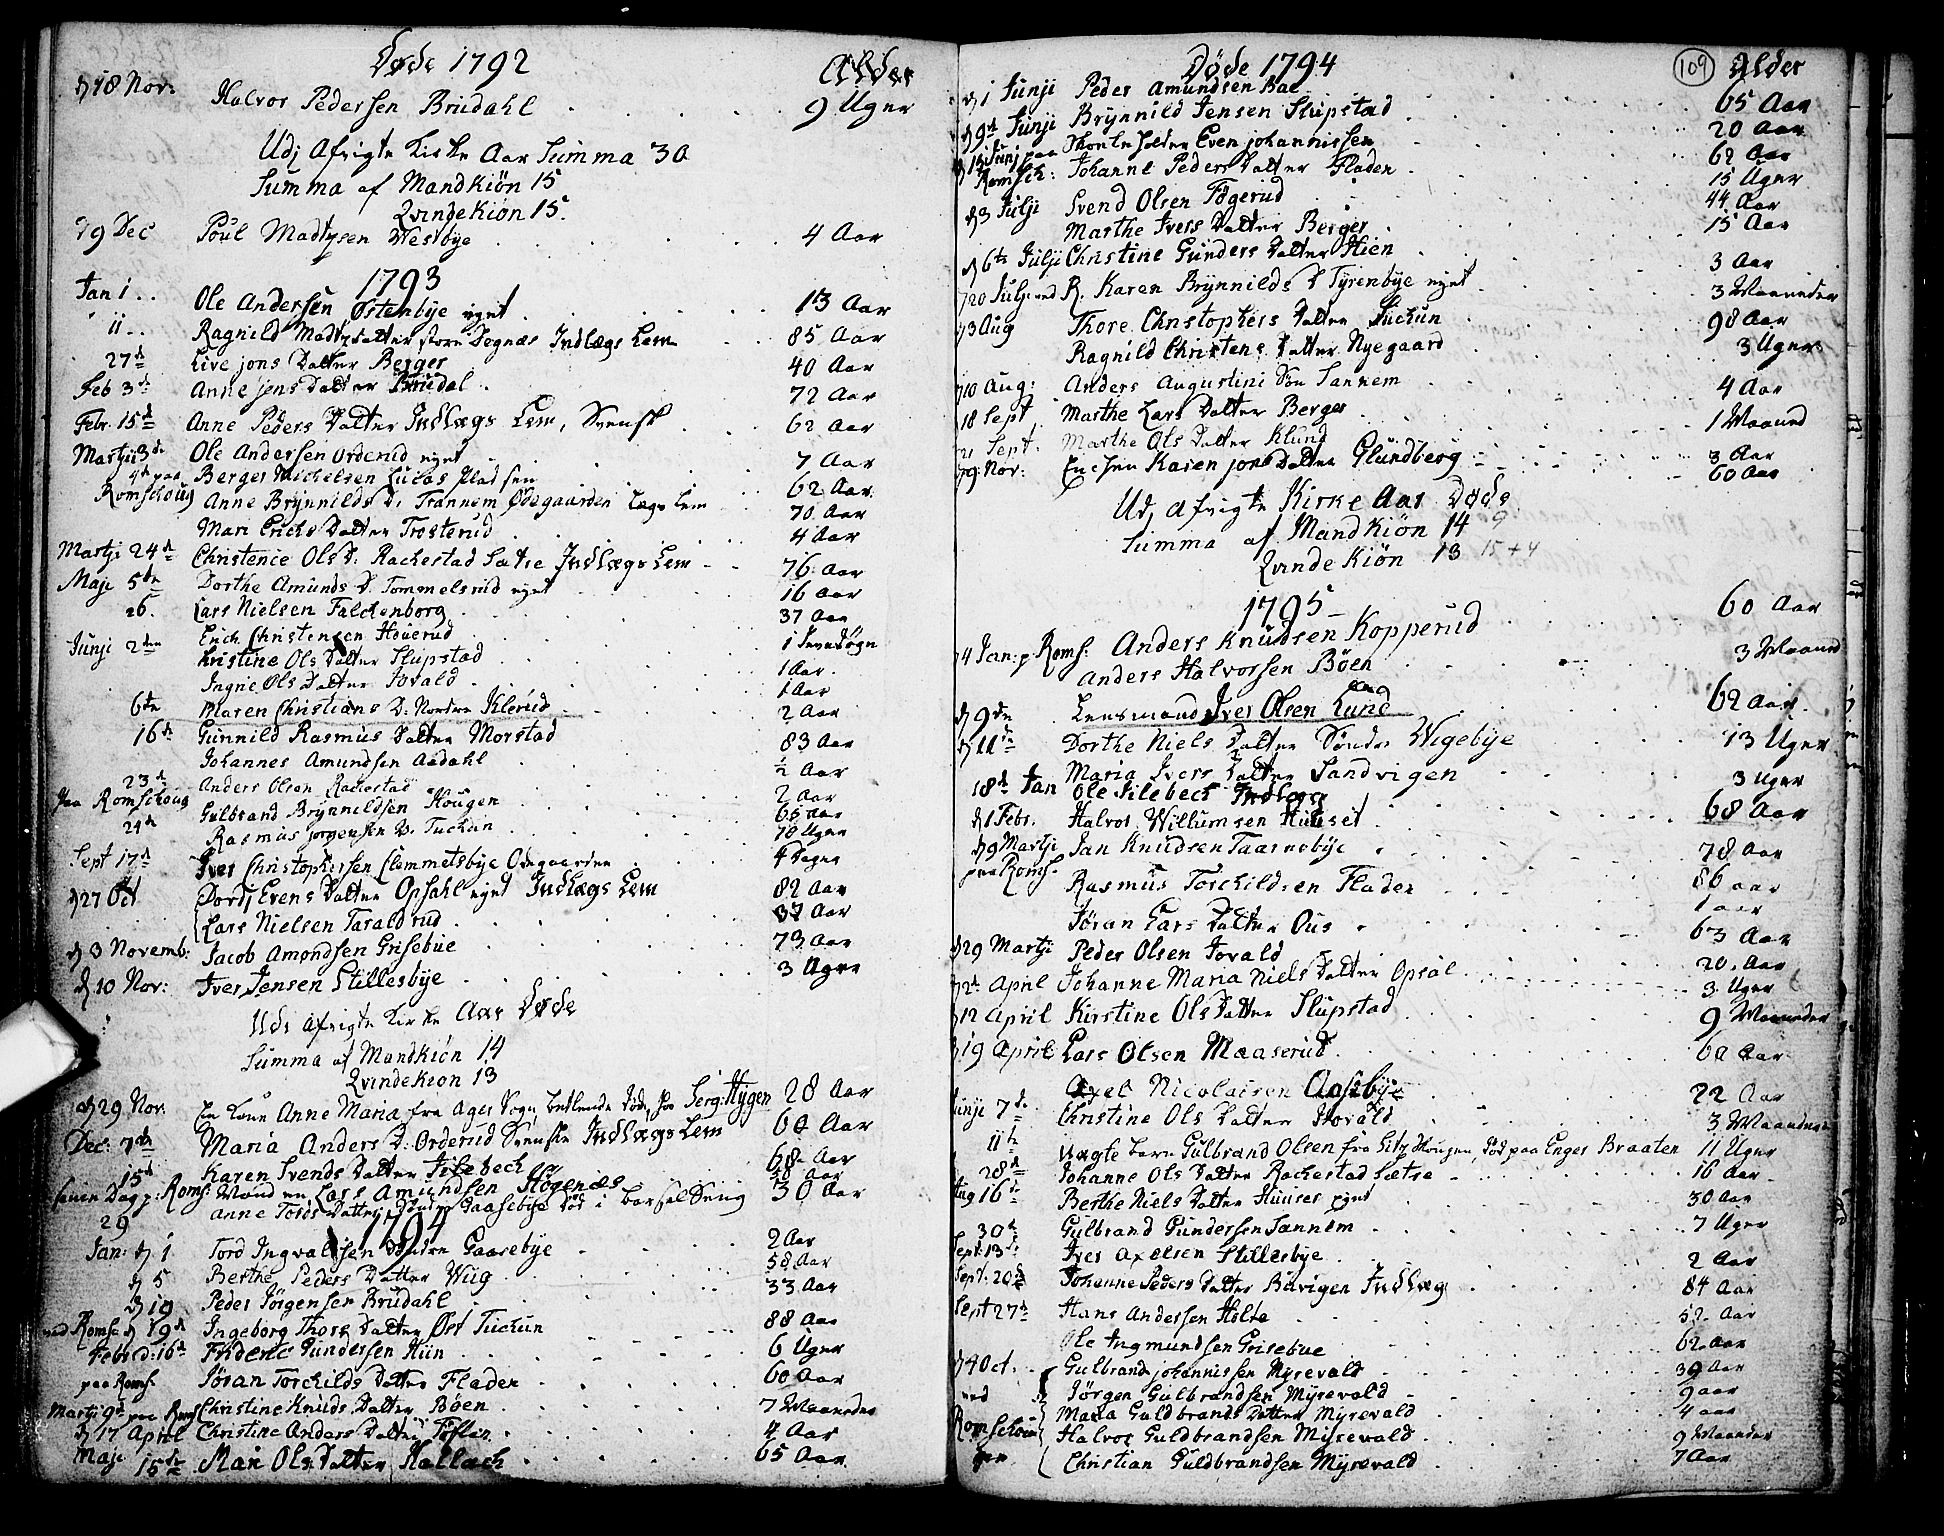 Døde 1792 Alder
d 18 Nov: Halvor Pedersen Brudahl 9 Uger
Udj Afvigte Kirke Aar Summa 30
Summa af Mandkiön 15
Qvindekiön 15.
d 9 Dec Poul Madtzsen Westbye 4 Aar
1793
Jan 1 Ole Andersen Østenbye eget 13 Aar
11 Ragnild Madtzdatter store Degnæs Indlægs Lem 85 Aar
27d Live jons Datter Berger 40 Aar
Feb 3d Anne jens Datter Brudal 72 Aar
Febr. 15d Anne Peders Datter Indlægs Lem, Svensk 62 Aar
Martji 3d Ole Andersen Orderud eget 7 Aar
4de paa Berger Michelsen Lucas Pladsen 62 Aar
Romschoug Anne Brynnilds D. Trannem Ödegaarden Lægs Lem 70 Aar
Mari Erichs Datter Trosterud 4 Aar
Martji 24d Christence Ols D. Rachestad Sætre Indlægs Lem 76 Aar
Maje 5de Dorthe Amunds D. Tommelsrud eget 16 Aar
26. Lars Nielsen Falchenborg 37 Aar
Erich Christensen Houerud 1
Junji 2den Kristine Ols Datter Slupstad 1 Aar
Ingrie Ols Datter Jovald 1 Aar
6te Maren Christians D. Nordre Klerud 2 Aar
16d Gunnild Rasmus Datter Morstad 83 Aar
Johannes Amundsen Aadahl ½ Aar
23d Anders Olsen Rachestad 2 Aar
Paa Romschoug Gulbrand Brynnildsen Hougen 65 Aar
24d Rasmus jørgensen D. Tuchun 10 Uger
Sept 17d Iver Christophersen Clemmetsbye Ödegaarden 4 Dage
d 27 Oct Dordj Evens Datter Opsahl eget Indlægs Lem 82 Aar
Lars Nielsen Taraldrud 37 Aar
d 3 Novemb: Jacob Amondsen Grisebue 73 Aar
d 10 Nov: Iver Jensen Stillesbye 3 Uger
Udj Afvigte Kirke Aar Døde
Summa af Mandkiön 14
Qvindekiön 13
d 29 Nov. En Kone Anne Maria fra Ager Sogn betlende døde hos Serg: Hygen 28 Aar
Dec: 7de Maria Anders D. Orderud Svenske Indlægs Lem 60 Aar
15d Karen Svends Datter Silebech 68 Aar
samme Dag p: Roms: Manden Lars Amundsen Høgenæs Aar
29 Anne Tords Datter Söndre Gaasebye död i Barsel Seng 30 Aar
1794
Jan: d 1 Tord Ingvaldsen Söndre Gaasebye 2 Aar
d 5 Berthe Peders Datter Wiig 58 Aar
d 19 Peder Jörgensen Brudahl 33 Aar
ved Roms: d 19d Ingeborg Thors Datter Øst Tuchun 88 Aar
Febr d: 16d Frideric Gundersen Hiin 6 Uger
paa Roms. Jöran Torchilds Datter Fladen 60 Aar
Martji 9d paa Roms Christine Knuds Datter Böen 7 Maaneder
d 17 April Christine Anders Datter Toflen 4 Aar
Maje 15de Mari Ols Datter Kallach 65 Aar
Döde 1794 109 Alder
d 1 Junji Peder Amundsen Bae 65 Aar
d 9d Junji Brynnild Jensen Slupstad 20 Aar
d 15 Junj paa Even johannissen 62 Aar
Romsch: Johanne Peders Datter Fladen 15 Uger
d 3 Julji Svend Olsen Fögerud 44 Aar
Marthe Ivers Datter Berger 15 Aar
d 6te Julji Christine Gunders Datter Hien 3 Aar
d 20 Julj: ved R. Karen Brynnilds D Tyrenbye eget 3 Maaneder
d 3 Aug Thore Christophers Datter Tuchun 98 Aar
Ragnild Christens Datter Nyegaard 3 Uger
d 10 Aug: Anders Augustini Søn Sannem 4 Aar
18 Sept Marthe Lars Datter Berger 1 Maaned
21 Sept. Marthe Ols Datter Klund 3 Aar
d 9 Nov: Enchen Karen jons Datter Glundberg 60 Aar
Udj Afvigte Kirke Aar Døde
Summa af Mandkiön 14 9
Qvindekiön 13 15+4
1795
d 4 Jan: p. Roms: Anders Knudsen Kopperud 60 Aar
Anders Halvorsen Böen 3 Maaned
d 9de Lensmand Iver Olsen Lund 62 Aar
d 11de Dorthe Niels Datter Söndre Wigebye 13 Uger
Maria Ivers Datter Sandvigen 3 Uger
18d Jan Ole Silebech Indlægs 68 Aar
d 1 Febr. Halvor Willumsen Huuset
d 9 Martji Jan Knudsen Taarnebye 78 Aar
paa Roms. Rasmus Torchildsen Fladen 86 aar
Jöran Lars Datter Ous 1 aar
d 29 Martji Peder Olsen Jovald 63 Aar
d 2d April Johanne Maria Niels Datter Opsal 20 Aar
3 Uger
d 12 April Kirstine Ols Datter Slupstad 9 Maaneder
d 19 April Lars Olsen Maaserud 60 Aar
Axel Nicolaisen Aasebye 22 Aar
Junji 7de Christine Ols Datter Hovald 3 Maaneder
11te uægte barn Gulbrand Olsen fra Sitz Hougen, död paa Enger Braaten 11 Uger
28d Johanne Ols Datter Rachestad Sætre 16 Aar
Aug 16d Berthe Niels Datter Huuser eget 30 Aar
30d Gulbrand Gundersen Sannem 7 Uger
Sept: 13d Iver Axelsen Stillesbye 2 Aar
Sept. 20d Johanne Peders Datter Buvigen Indlæg 84 Aar
Sept 27d Hans Andersen Holte 52 Aar
Ole Ingmundsen Grisebue 62 Aar
d 4 Oct. Gulbrand johannissen Myrevald 39 Aar
ved Jörgen Gulbrandsen Myrevald 9 aar
Maria Guldbrands Datter Myrevald 4 aar
Romschou Halvor Guldbrandsen Myrevald 9 Maaneder
gen Christian Guldbrandsen Myrevald 7 Aar